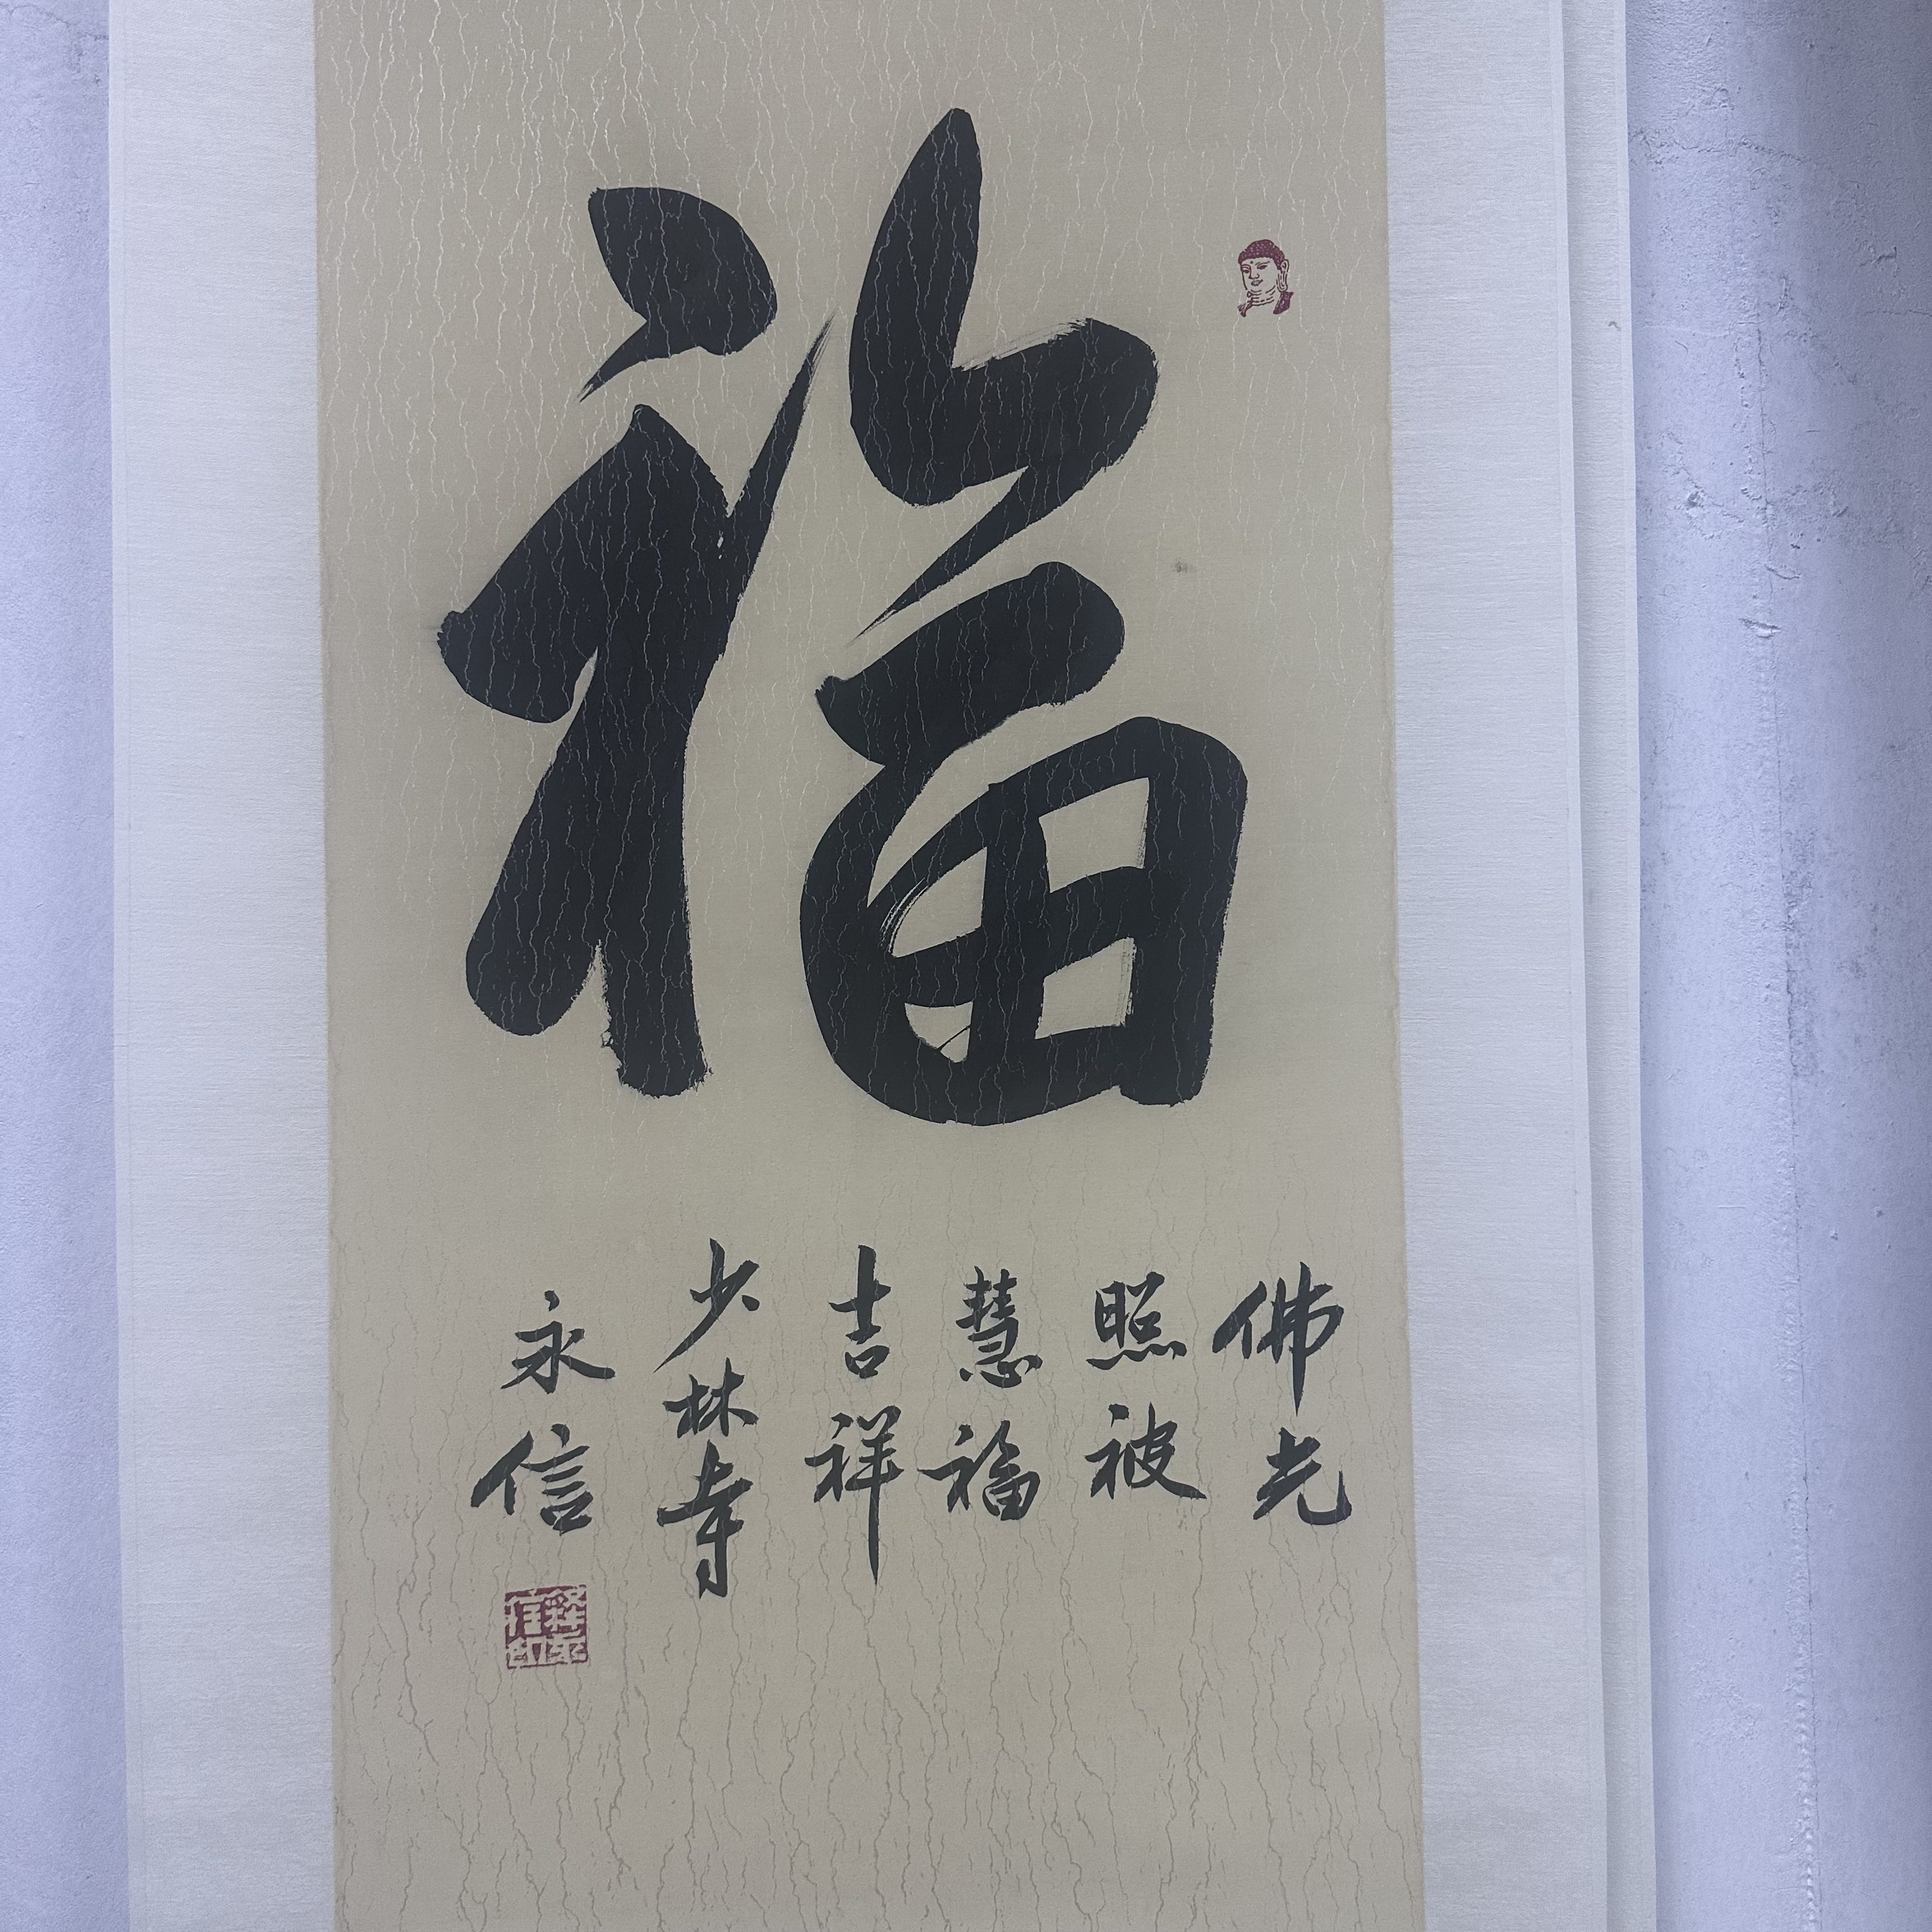 福
佛光
照被
慧福
吉祥
少林寺
永信